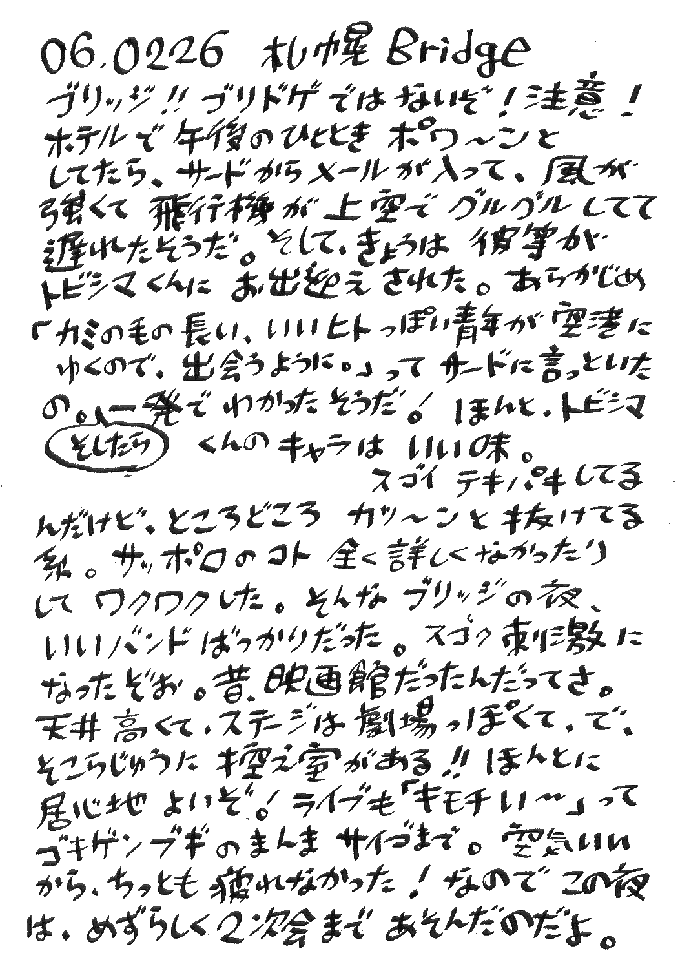 06.0226 札幌 Bridge
ブリッジ!! ブリドゲではないぞ！注意！
ホテルで午後のひととき ポワ〜ンと
してたら、サードからメールが入って、風が
強くて飛行機が上空でグルグルしてて
遅れたそうだ。そして、きょうは彼等が
トビシマくんにお出迎えされた。あらかじめ
「カミの毛の長い、いいヒトっぽい青年が空港に
ゆくので、出会うように。」ってサードに言っといた
の。一発でわかったそうだ！ほんと、トビシマ
そしたら くんのキャラはいい味。
スゴイ テキパキしてる
んだけど、ところどころ ガツ〜ンと抜けてる
系。サッポロのコト 全く詳しくなかったり
して ワクワクした。そんなブリッジの夜、
いいバンドばっかりだった。スゴク刺激に
なったぞお。昔、映画館だったんだってさ。
天井高くて、ステージは劇場っぽくて、で、
そこらじゅうに控え室がある!! ほんとに
居心地よいぞ！ライブも「キモチい〜」って
ゴキゲンブギのまんまサイゴまで。空気いい
から、ちっとも疲れなかった！なのでこの夜
は、めずらしく2次会まであそんだのだよ。